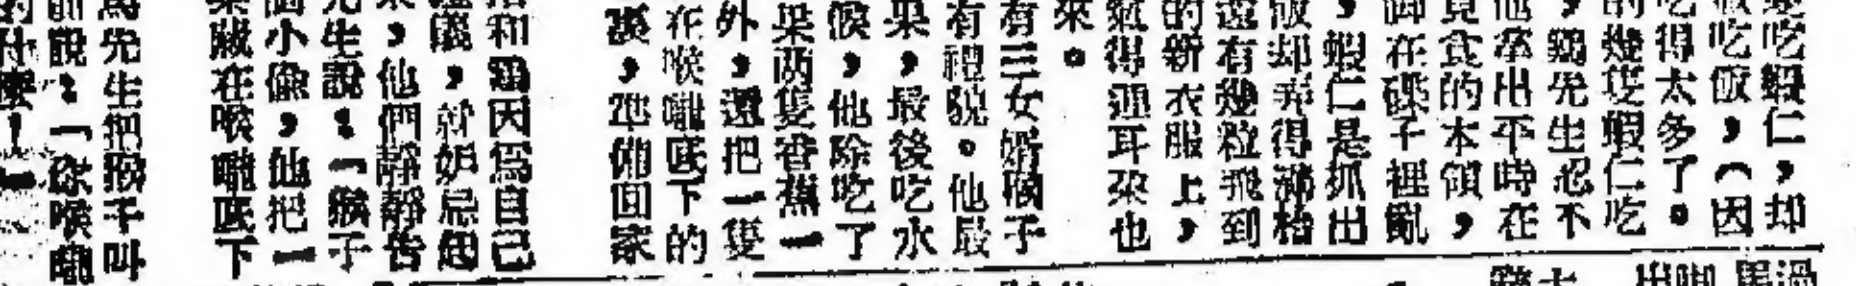 吃蝦仁，却
吃飯，（因
吃得太多了。
的幾隻蝦仁吃
，鷄先生忍不
他拿出平時在
覓食的本領，
脚在碟子裡亂
，蝦仁是抓出
飯却弄得滿枱
還有幾粒飛到
的新衣服上，
氣得連耳朶也
來。
有三女婿猴子
有禮貌。他最
果，最後吃水
候，他除吃了
菓兩隻香蕉一
外，還把一隻
在喉嚨底下的
，準備回家
和鷄因爲自己
，就妒忌起
，他們靜靜告
先生說：「猴子
個小偸，他把一
藏在喉嚨底下
先生把猴子叫
前說：「你喉嚨
的什麼！」